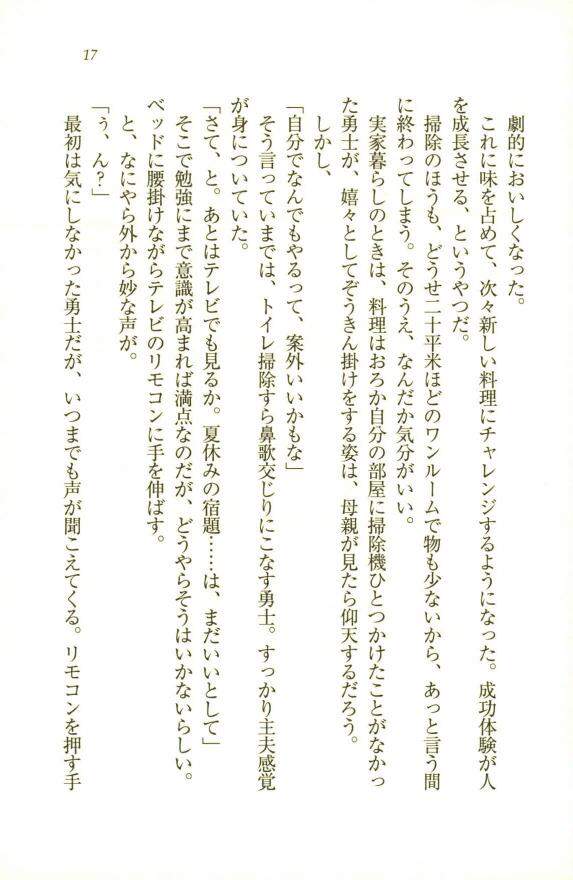 17
劇的においしくなった。
これに味を占めて、次々新しい料理にチャレンジするようになった。成功体験が人
を成長させる、というやつだ。
掃除のほうも、どうせ二十平米ほどのワンルームで物も少ないから、あっと言う間
に終わってしまう。そのうえ、なんだか気分がいい。
実家暮らしのときは、料理はおろか自分の部屋に掃除機ひとつかけたことがなかっ
た勇士が、嬉々としてぞうきん掛けをする姿は、母親が見たら仰天するだろう。
しかし、
「自分でなんでもやるって、案外いいかもな」
そう言っていまでは、トイレ掃除すら鼻歌交じりにこなす勇士。すっかり主夫感覚
が身についていた。
「さて、と。あとはテレビでも見るか。夏休みの宿題……は、まだいいとして」
そこで勉強にまで意識が高まれば満点なのだが、どうやらそうはいかないらしい。
ベッドに腰掛けながらテレビのリモコンに手を伸ばす。
と、なにやら外から妙な声が。
「ぅ、ん？」
最初は気にしなかった勇士だが、いつまでも声が聞こえてくる。リモコンを押す手